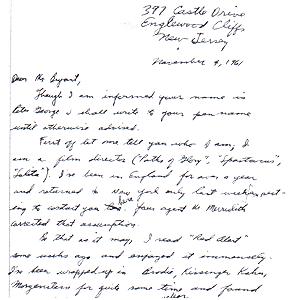 377 Castle Drive
Englewood Cliffs
New Jersey
November 9, 1961
Dear Mr Bryant,
Though I am informed your name is
Peter George I shall write to your pen name
until otherwise advised.
First off let me tell you who I am, I
am a film director ("Paths of Glory", "Spartacus",
"Lolita"). I've been in England for over a year
and returned to New York only last week expect-
ing to contact you here. Your agent Mr Meredith
corrected that assumption.
Be that as it may, I read "Red Alert"
some weeks ago and enjoyed it immensely.
I've been wrapped up in Brodie, Kissinger, Kahn,
Morgenstern for quite some time and found